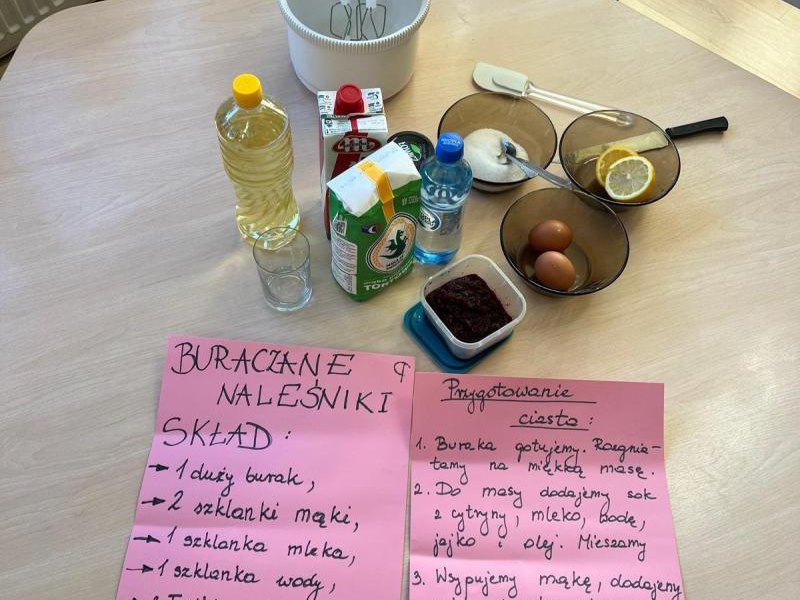 TORTOWA
BURACZANE
NALEŚNIKI
SKŁAD:
→ 1 duży burak,
→ 2 szklanki mąki,
→ 1 szklanka mleka,
→ 1 szklanka wody,
Przygotowanie
ciasta:
1. Buraka gotujemy. Rozgnia-
tamy na miękką masę.
2. Do masy dodajemy sok
z cytryny, mleko, wodę,
jajko i olej. Mieszamy
3. Wsypujemy mąkę, dodajemy